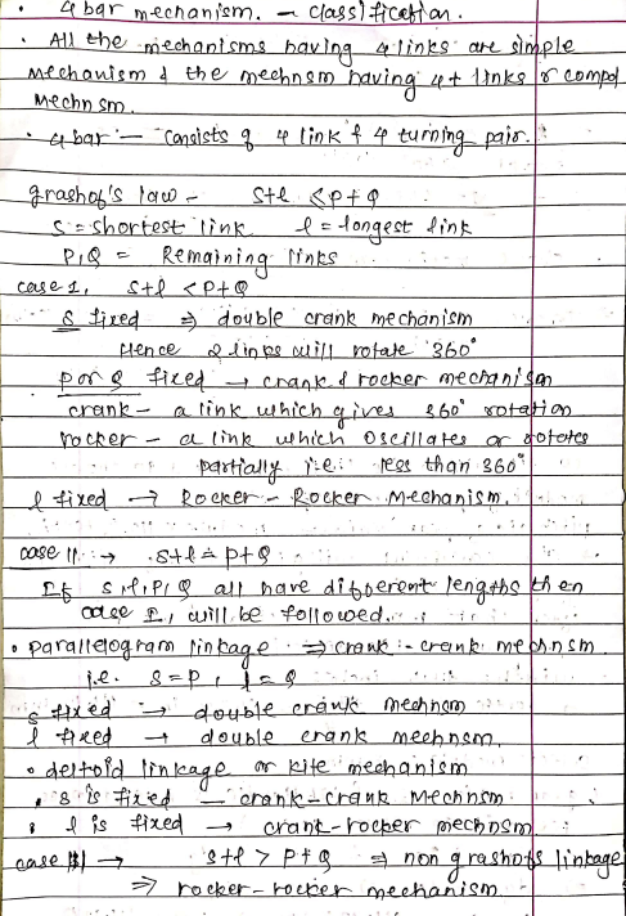 • 4 bar mechanism. - classification.
• All the mechanisms having 4 links are simple
mechanism & the mechnsm having 4+ links r compd
Mechnsm.
• 4 bar - Consists of 4 link & 4 turning pair.
grashof's law - s+l ≤ P+Q
S = shortest link l = longest link
P,Q = Remaining links
case I, s+l < P+Q
S fixed ⇒ double crank mechanism
Hence 2 links will rotate 360°
P or Q fixed → crank & rocker mechanism
crank - a link which gives 360° rotation
rocker - a link which oscillates or rotates
partially i.e. less than 360°
l fixed → Rocker - Rocker Mechanism.
case II → s+l = P+Q
If s,l,P,Q all have different lengths then
case I, will be followed.
• parallelogram linkage ⇒ crank - crank mechnsm
i.e. S = P, l = Q
s fixed → double crank mechnsm
l fixed → double crank mechnsm.
• deltoid linkage or kite mechanism
• s is fixed - crank-crank Mechnsm.
• l is fixed → crank-rocker mechnsm
case III → s+l > P+Q ⇒ non grashof's linkage
⇒ rocker-rocker mechanism.